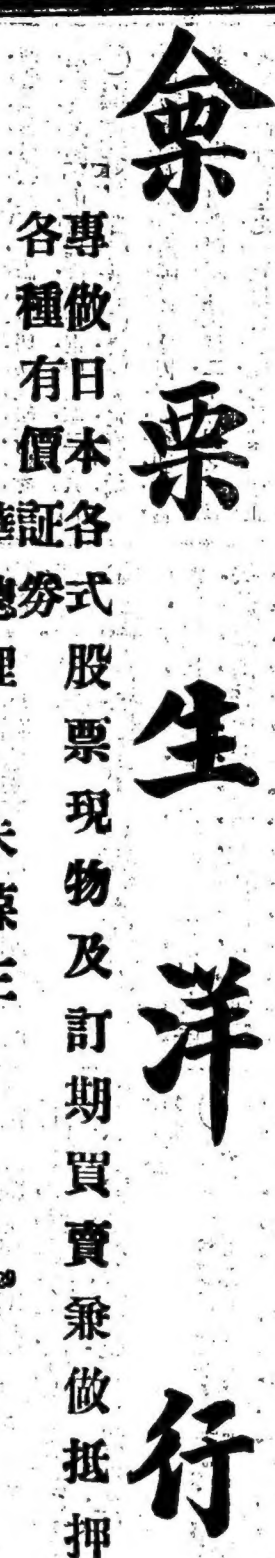 粂栗生洋行
專做日本各式股票現物及訂期買賣兼做抵押
各種有價証券